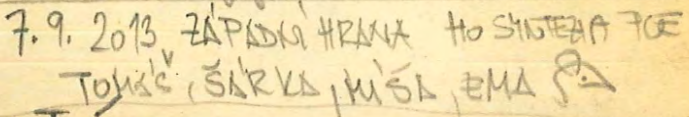 7.9.2013 ZÁPADNÍ HRANA HO SYNTEZIA PCE
TOMÁŠ, ŠÁRKA, MÍŠA, EMA